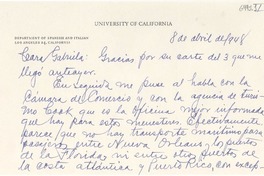 UNIVERSITY OF CALIFORNIA
DEPARTMENT OF SPANISH AND ITALIAN
LOS ANGELES 24, CALIFORNIA
8 de abril de 1948
Cara Gabriela: Gracias por su carta del 3 que me
llegó anteayer.
En seguida me puse al habla con la
Cámara de Comercio y con la agencia de turis-
mo Cook que es la oficina mejor informada
que hay para estos menesteres. Efectivamente
parece que no hay transporte marítimo para
pasajeros entre Nueva Orleans y los puertos
de la Florida ni entre otros puertos de
la costa atlántica y Puerto Rico, con excep-